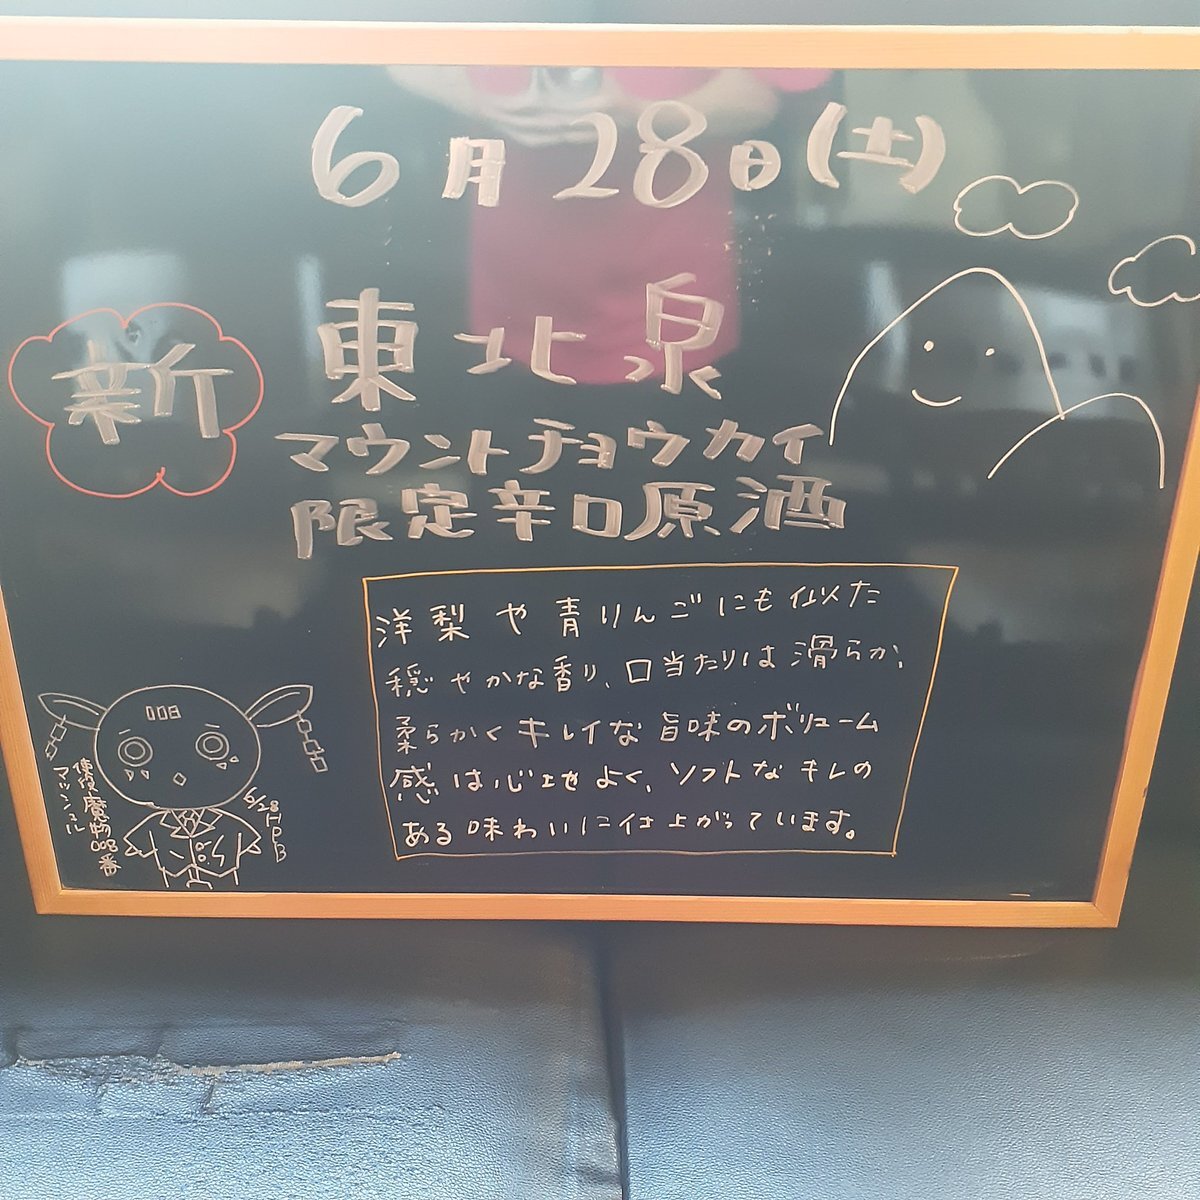 6月28日(土)
新
東北泉
マウントチョウカイ
限定辛口原酒
洋梨や青りんごにも似た
穏やかな香り、口当たりは滑らか、
柔らかくキレイな旨味のボリューム
感は心地よく、ソフトなキレの
ある味わいに仕上がっています。
008
使役魔物008番
マッシュル
6/28 HPB